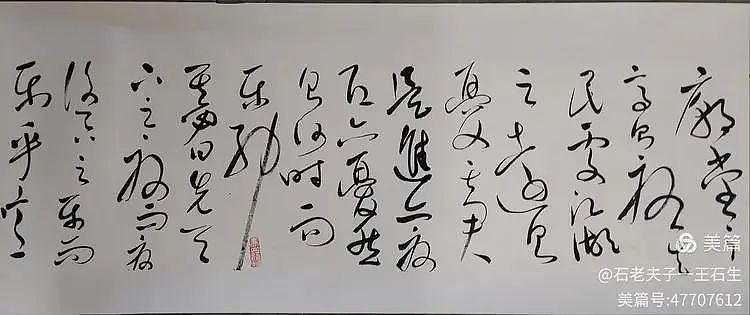 廟堂之
高则忧其
民處江湖
之遠则
憂其君
是進亦憂
退亦憂然
则何时而
乐耶
其必曰先天
下之忧而忧
後天下之乐而
乐乎
美篇
@石老夫子一王石生
美篇号:47707612